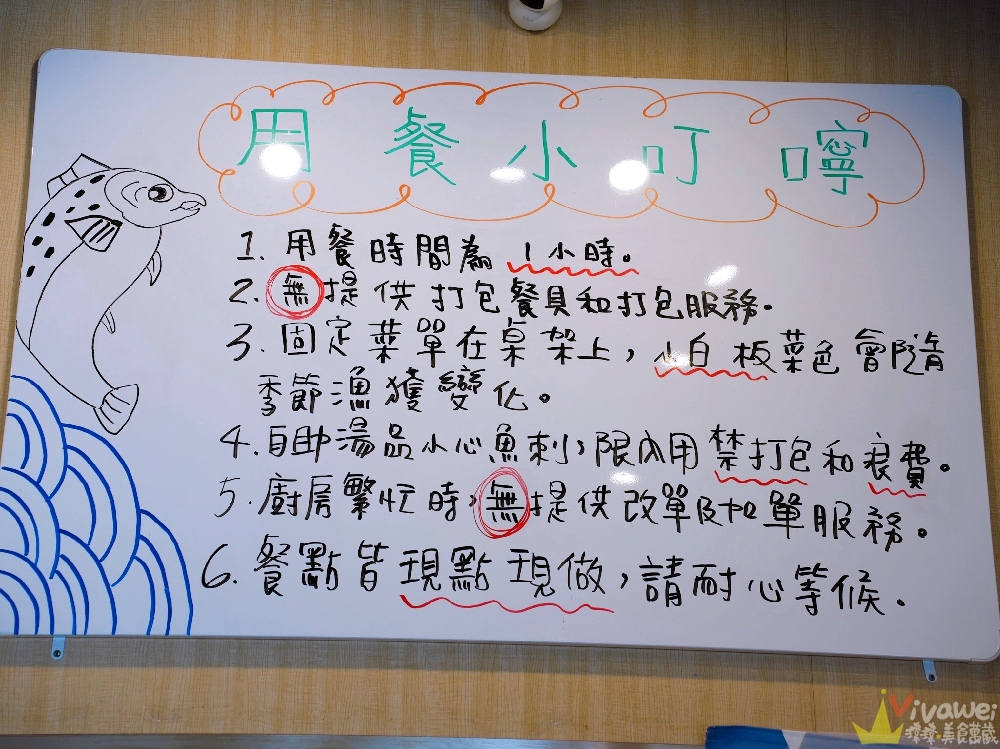 用餐小叮嚀
1. 用餐時間為1小時。
2. 無提供打包餐具和打包服務。
3. 固定菜單在桌架上，小白板菜色會隨
季節漁獲變化。
4. 自助湯品小心魚刺，限內用禁打包和浪費。
5. 廚房繁忙時，無提供改單及加單服務。
6. 餐點皆現點現做，請耐心等候。
Vivawei